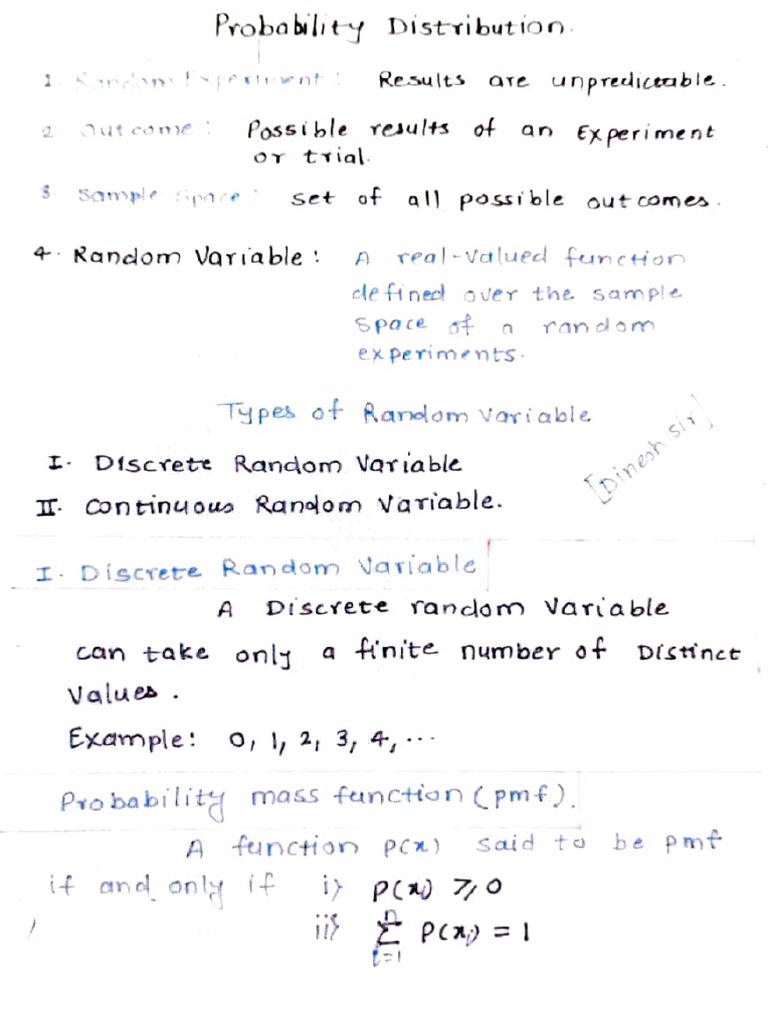 Probability Distribution.
1. Random Experiment : Results are unpredictable.
2. Outcome : Possible results of an Experiment
or trial.
3. Sample Space : set of all possible outcomes.
4. Random Variable : A real-valued function
defined over the sample
space of a random
experiments.
Types of Random Variable
[Dinesh sir]
I. Discrete Random Variable
II. Continuous Random Variable.
I. Discrete Random Variable
A Discrete random Variable
can take only a finite number of Distinct
Values.
Example: 0, 1, 2, 3, 4, ...
Probability mass function (pmf).
A function p(x) said to be pmf
if and only if i) P(xi) ≥ 0
ii) n∑i=1 P(xi) = 1